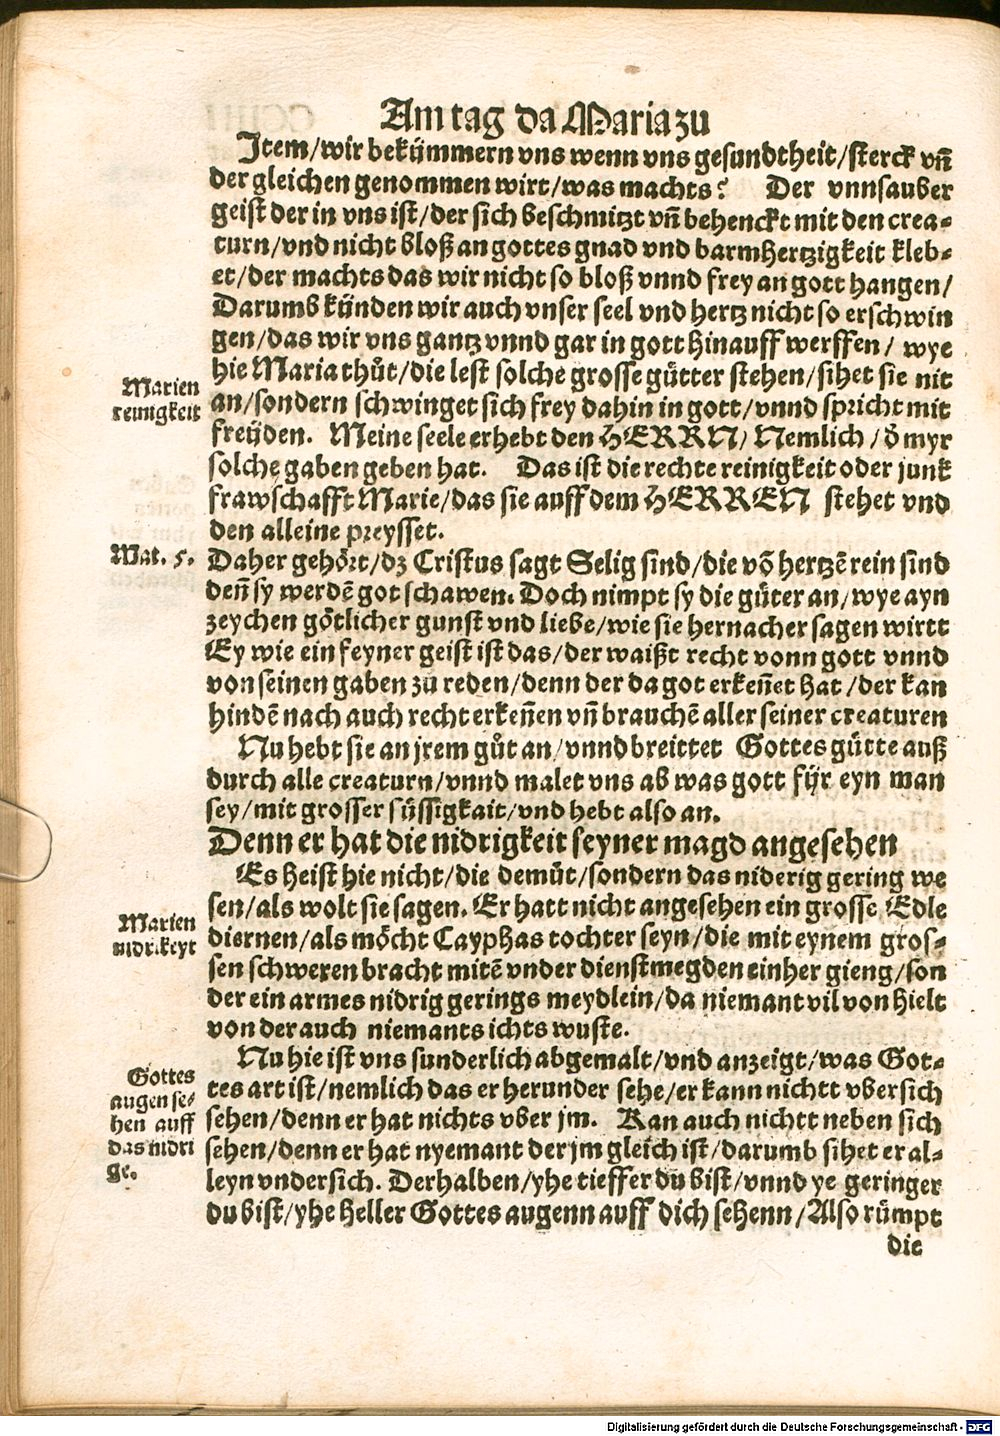 Am tag da Maria zu
Item/wir bekümmern vns wenn vns gesundtheit/sterck vñ
der gleichen genommen wirt/was machts? Der vnnsauber
geist der in vns ist/der sich beschmitzt vñ behenckt mit den crea-
turn/vnd nicht bloß an gottes gnad vnd barmhertzigkeit kleb-
et/der machts das wir nicht so bloß vnnd frey an gott hangen/
Darumb künden wir auch vnser seel vnd hertz nicht so erschwin
gen/das wir vns gantz vnnd gar in gott hinauff werffen/ wye
hie Maria thůt/die lest solche grosse gütter stehen/sihet sie nit
Marien
reinigkeit
an/sondern schwinget sich frey dahin in gott/vnnd spricht mit
freüden. Meine seele erhebt den HERRN/ Nemlich/d̕ myr
solche gaben geben hat. Das ist die rechte reinigkeit oder junk
frawschafft Marie/das sie auff dem HERREN stehet vnd
den alleine preysset.
Mat. 5.
Daher gehört/dz Cristus sagt Selig sind/die võ hertzẽ rein sind
deñ sy werdẽ got schawen. Doch nimpt sy die güter an/wye ayn
zeychen götlicher gunst vnd liebe/wie sie hernacher sagen wirtt
Ey wie ein feyner geist ist das/der waißt recht vonn gott vnnd
von seinen gaben zů reden/denn der da got erkeñet hat/der kan
hindẽ nach auch recht erkeñen vñ brauchẽ aller seiner creaturen
Nu hebt sie an jrem gůt an/vnnd breittet Gottes gütte auß
durch alle creaturn/vnnd malet vns ab was gott für eyn man
sey/mit grosser süssigkait/vnd hebt also an.
Denn er hat die nidrigkeit seyner magd angesehen
Es heist hie nicht/die demůt/sondern das niderig gering we
sen/als wolt sie sagen. Er hatt nicht angesehen ein grosse Edle
Marien
nidrikeyt
diernen/als möcht Cayphas tochter seyn/die mit eynem gros-
sen schweren bracht mitẽ vnder dienstmegden einher gieng/son
der ein armes nidrig gerings meydlein/da niemant vil von hielt
von der auch niemants ichts wuste.
Nu hie ist vns sunderlich abgemalt/vnd anzeigt/was Got-
Gottes
augen se-
hen auff
das nidri
ge.
tes art ist/nemlich das er herunder sehe/er kann nichtt vbersich
sehen/denn er hat nichts vber jm. Kan auch nichtt neben sich
sehen/denn er hat nyemant der jm gleich ist/darumb sihet er al-
leyn vndersich. Derhalben/yhe tieffer du bist/vnnd ye geringer
du bist/yhe heller Gottes augenn auff dich sehenn/Also rümpt
die
Digitalisierung gefördert durch die Deutsche Forschungsgemeinschaft - DFG